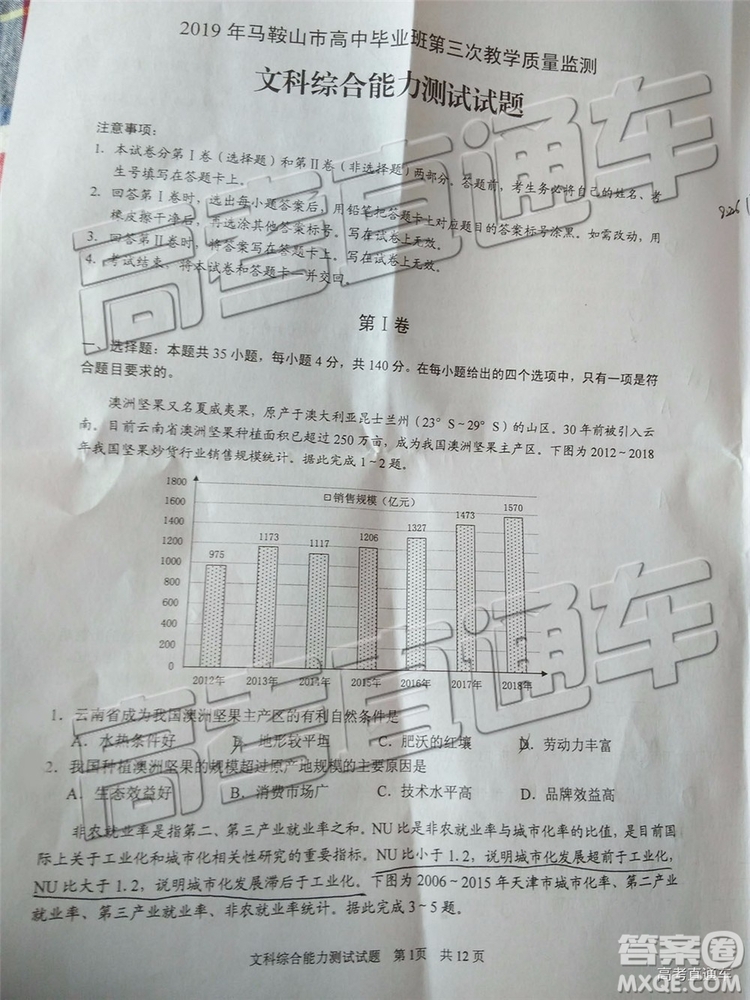 2019年马鞍山市高中毕业班第三次教学质量监测
文科综合能力测试试题
注意事项：
1. 本试卷分第Ⅰ卷（选择题）和第Ⅱ卷（非选择题）两部分。答题前，考生务必将自己的姓名、考
生号填写在答题卡上。
2. 回答第Ⅰ卷时，选出每小题答案后，用铅笔把答题卡上对应题目的答案标号涂黑。如需改动，用
橡皮擦干净后，再选涂其他答案标号。写在试卷上无效。
3. 回答第Ⅱ卷时，将答案写在答题卡上。写在试卷上无效。
4. 考试结束，将本试卷和答题卡一并交回。
926
第Ⅰ卷
一、选择题：本题共35小题，每小题4分，共140分。在每小题给出的四个选项中，只有一项是符
合题目要求的。
澳洲坚果又名夏威夷果，原产于澳大利亚昆士兰州（23°S～29°S）的山区。30年前被引入云
南。目前云南省澳洲坚果种植面积已超过250万亩，成为我国澳洲坚果主产区。下图为2012～2018
年我国坚果炒货行业销售规模统计。据此完成1～2题。
1800
1600
1400
1200
1000
800
600
400
200
0
销售规模（亿元）
975
1173
1117
1206
1327
1473
1570
2012年 2013年 2014年 2015年 2016年 2017年 2018年
1. 云南省成为我国澳洲坚果主产区的有利自然条件是
A. 水热条件好 B. 地形较平坦 C. 肥沃的红壤 D. 劳动力丰富
2. 我国种植澳洲坚果的规模超过原产地规模的主要原因是
A. 生态效益好 B. 消费市场广 C. 技术水平高 D. 品牌效益高
非农就业率是指第二、第三产业就业率之和。NU比是非农就业率与城市化率的比值，是目前国
际上关于工业化和城市化相关性研究的重要指标。NU比小于1.2，说明城市化发展超前于工业化，
NU比大于1.2，说明城市化发展滞后于工业化。下图为2006～2015年天津市城市化率、第二产业
就业率、第三产业就业率、非农就业率统计。据此完成3～5题。
文科综合能力测试试题 第1页 共12页
高考直通车
高考直通车
答案圈
高考直通车
MXQE.COM